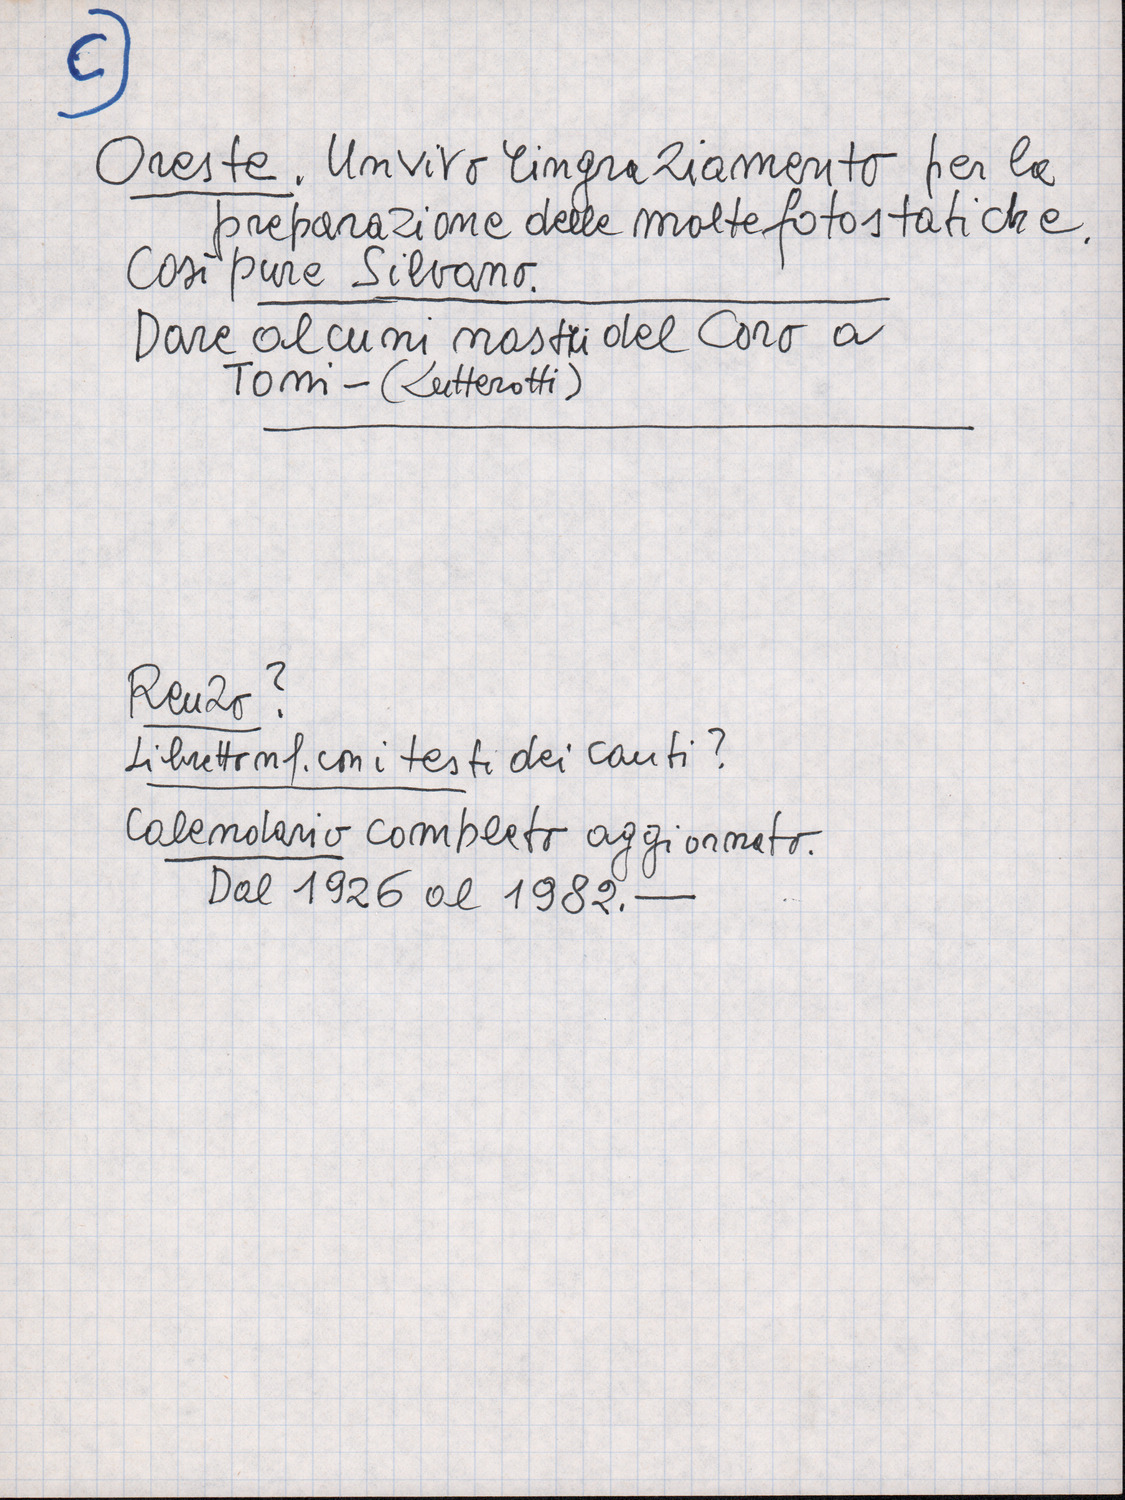 C)
Oreste. Un vivo ringraziamento per la
preparazione delle molte fotostatiche.
Così pure Silvano.
Dare alcuni nastri del Coro a
Toni - (Lutterotti)
Renzo?
Libretto con i testi dei canti?
Calendario completo aggiornato.
Dal 1926 al 1982. —